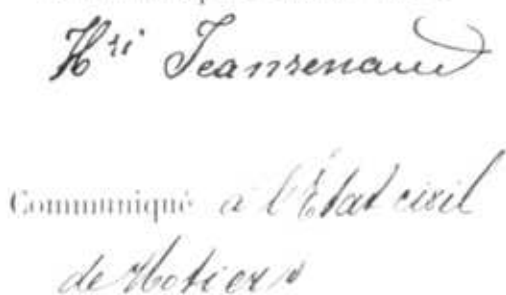 Hri Jeanrenaud
Communiqué à l'Etat civil
de Motiers